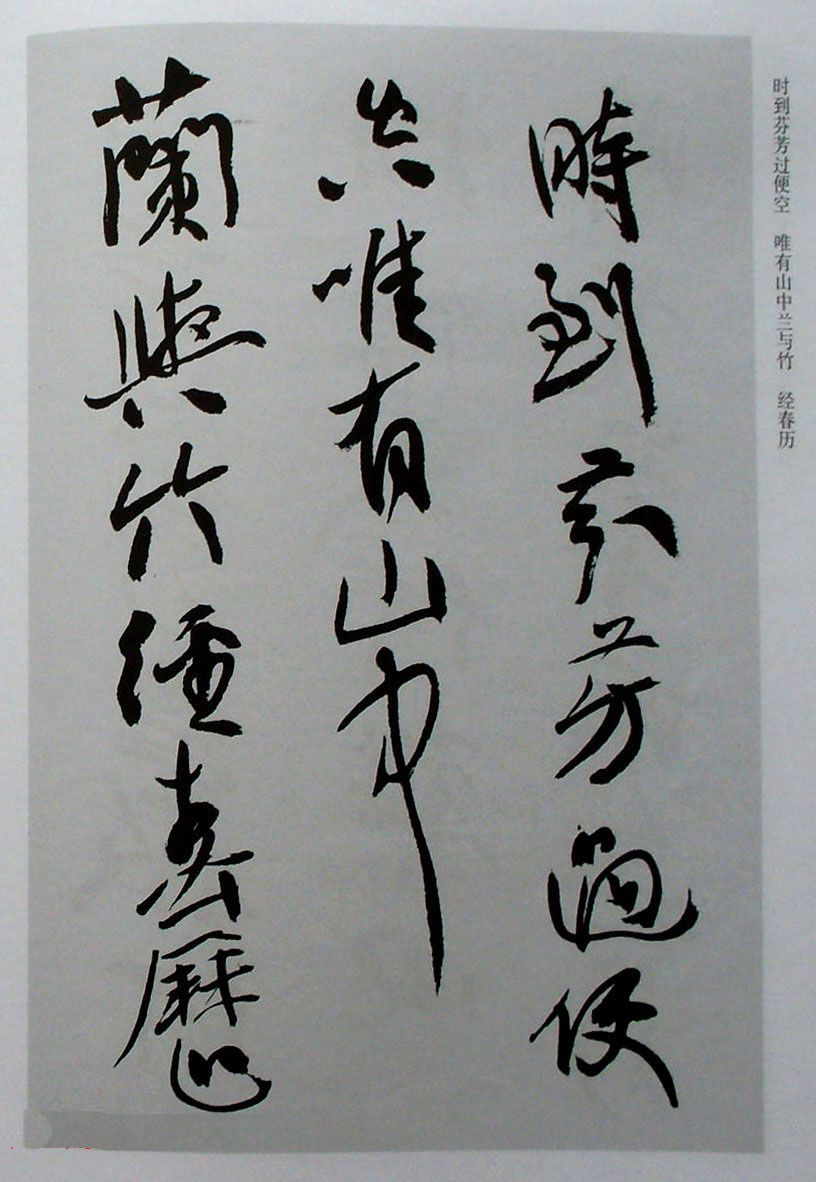 时到芬芳过便空　唯有山中兰与竹　经春历
時到芬芳過便
空唯有山中
蘭與竹經春歷